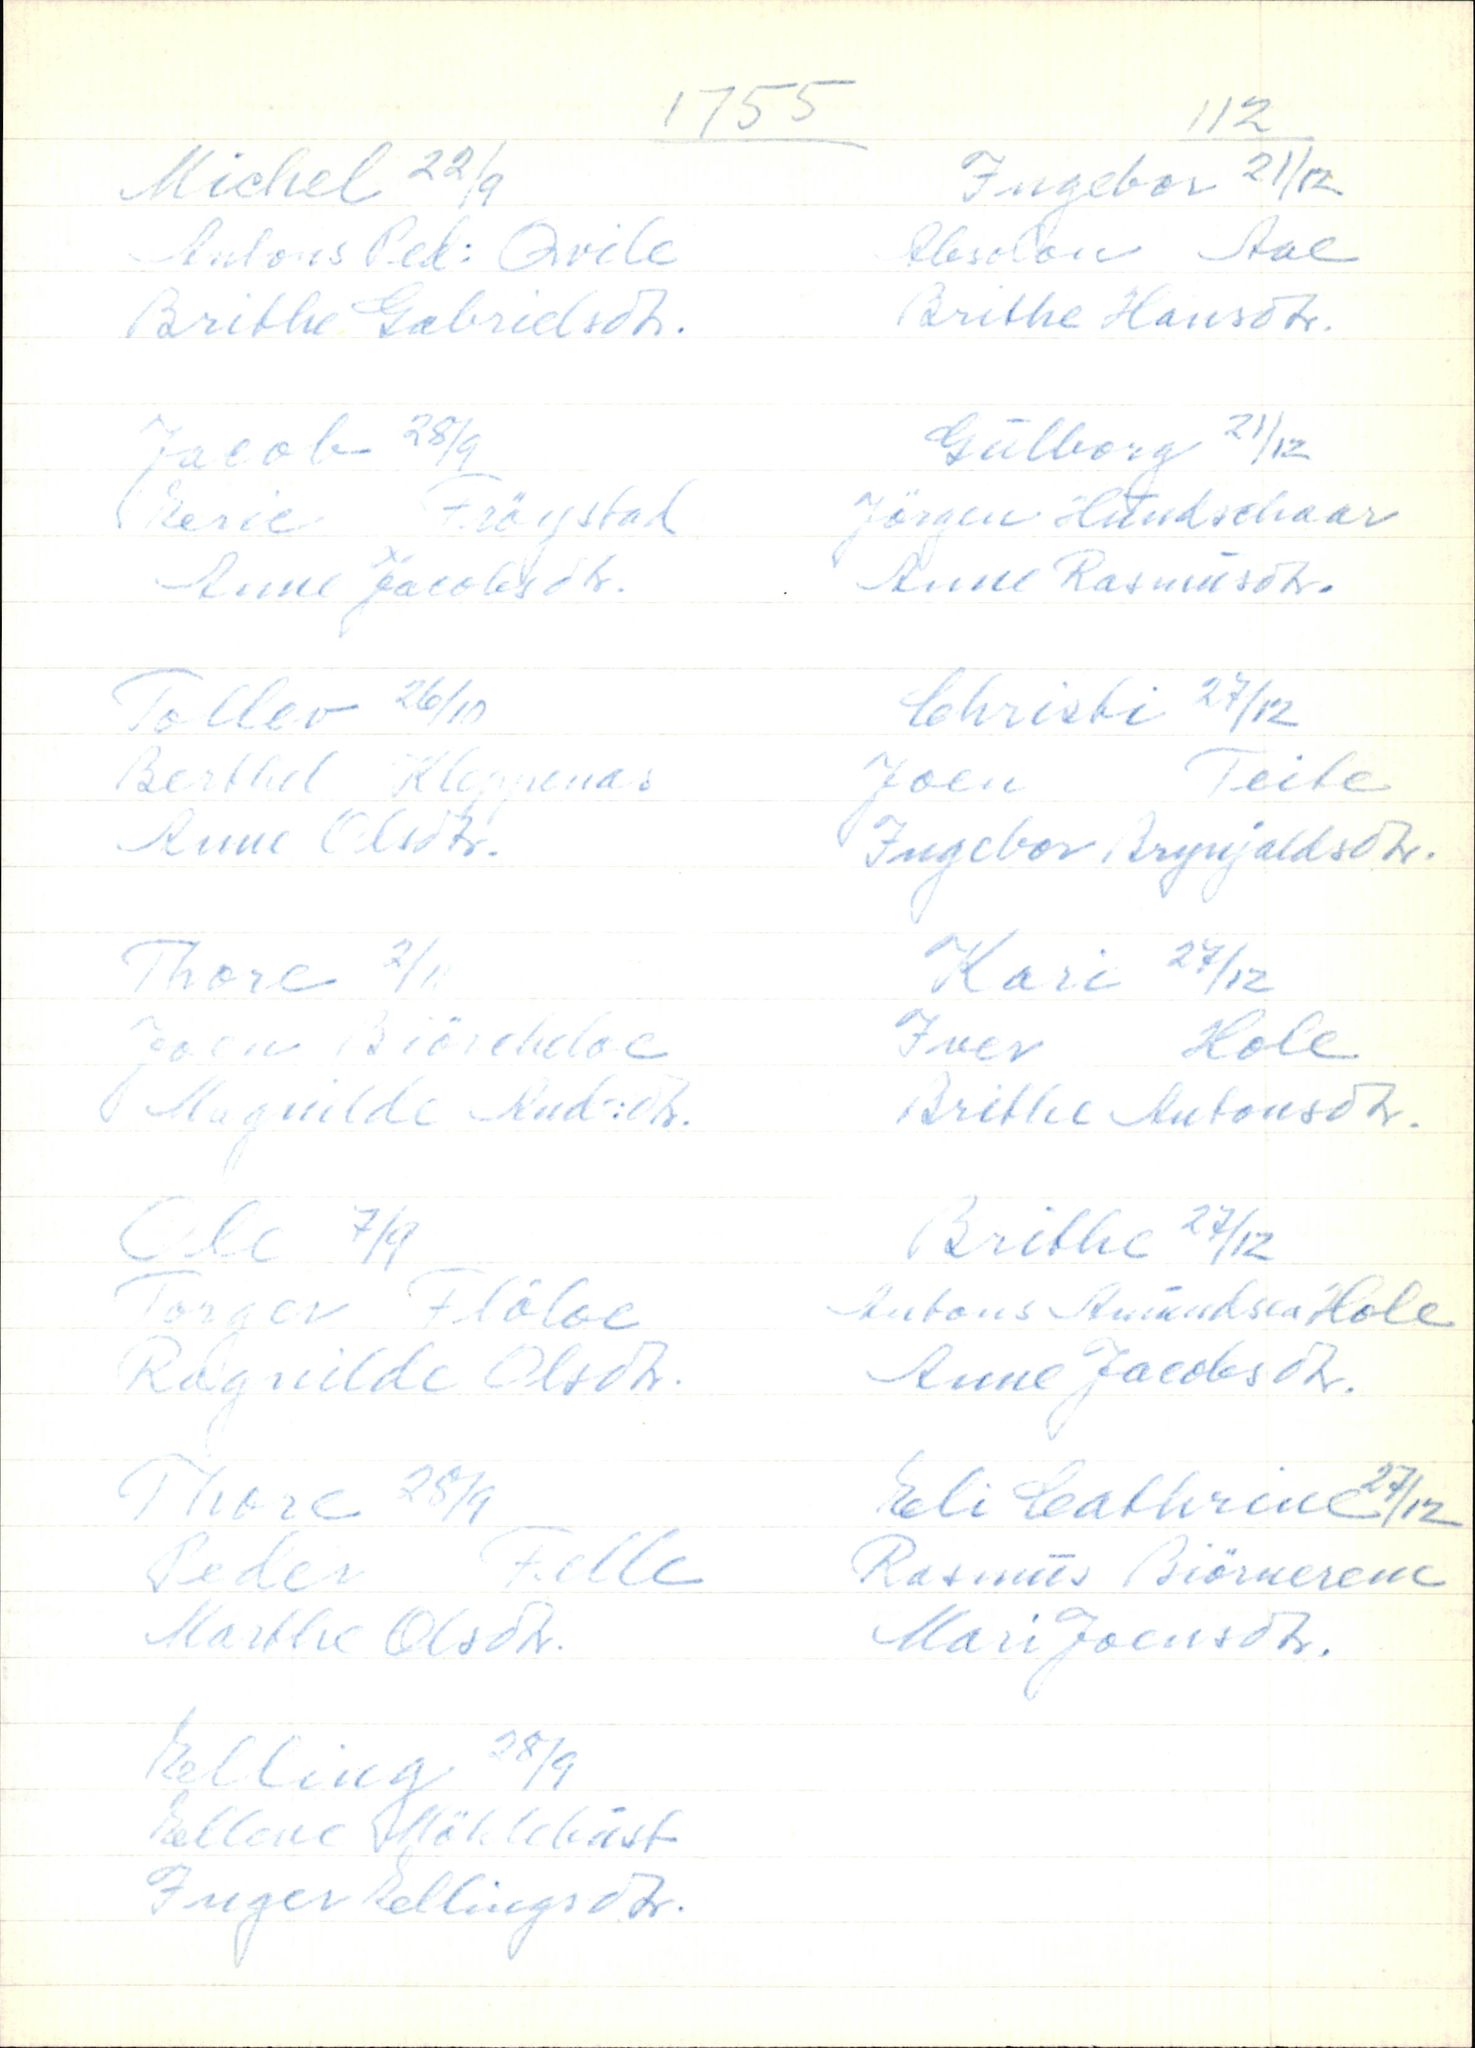 1755
112
Michel 22/9
Antons Ped: Qvile
Brithe Gabrielsdtr.
Jacob 28/9
Eric Fröystad
Anne Jacobsdtr.
Tollev 26/10
Berthel Kleppenas
Anne Olsdtr.
Thore 2/11
Joen Biörcheloe
Magnilde And:dtr.
Ole 7/9
Torger Flöloe
Ragnilde Olsdtr.
Thore 28/9
Peder Felle
Marthe Olsdtr.
Elling 28/9
Ellene Möhlebūst
Inger Ellingsdtr.
Ingebor 21/12
Absolon Aae
Brithe Hansdtr.
Gūlborg 21/12
Jörgen Hūndschaar
Anne Rasmūsdtr.
Christi 27/12
Joen Teite
Ingebor Brynjaldsdtr.
Kari 27/12
Iver Hole
Brithe Antonsdtr.
Brithe 27/12
Antons Amūndsen Hole
Anne Jacobsdtr.
Eli Cathrine 27/12
Rasmūs Biörnerene
Mari Joensdtr.